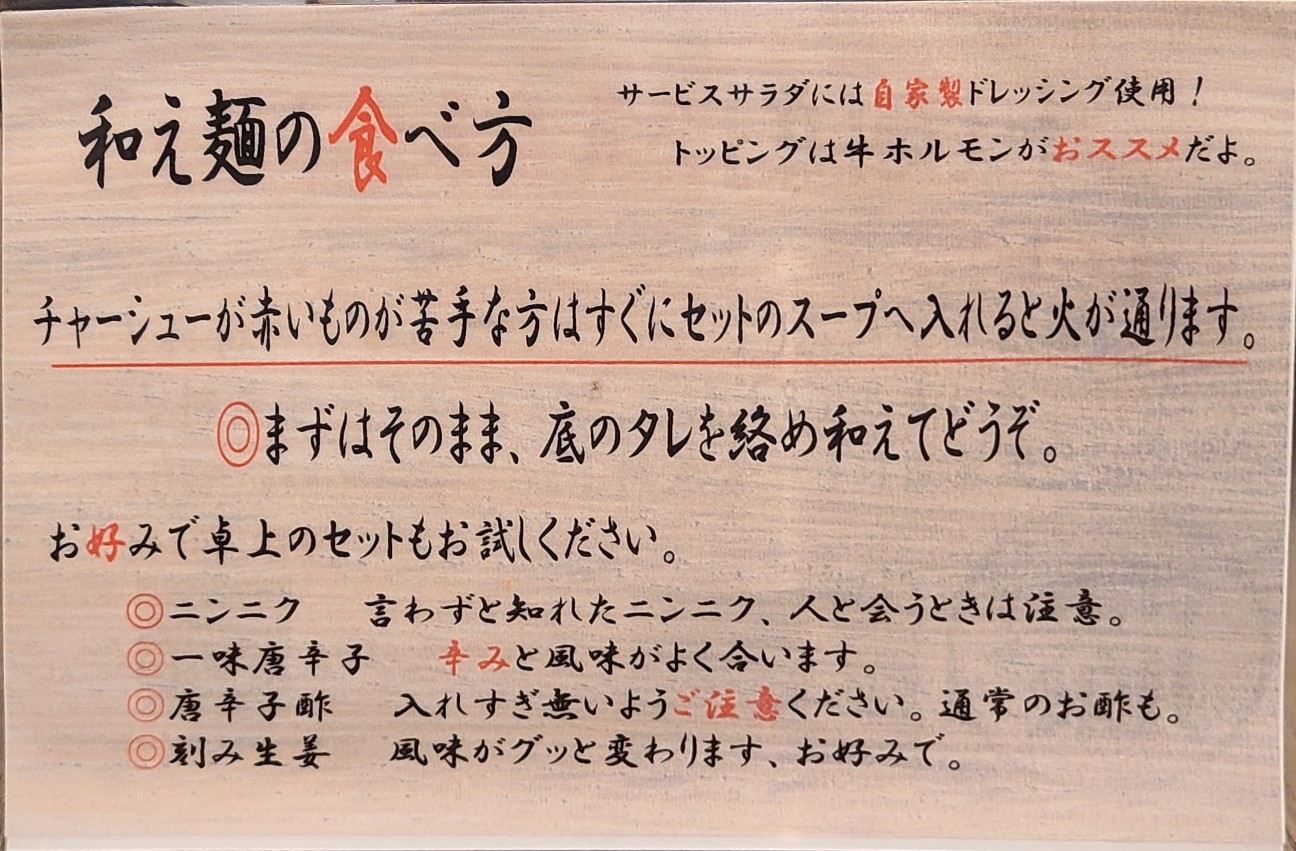 和え麺の食べ方
サービスサラダには自家製ドレッシング使用！
トッピングは牛ホルモンがおススメだよ。
チャーシューが赤いものが苦手な方はすぐにセットのスープへ入れると火が通ります。
◎まずはそのまま、底のタレを絡め和えてどうぞ。
お好みで卓上のセットもお試しください。
◎ニンニク　言わずと知れたニンニク、人と会うときは注意。
◎一味唐辛子　辛みと風味がよく合います。
◎唐辛子酢　入れすぎ無いようご注意ください。通常のお酢も。
◎刻み生姜　風味がグッと変わります、お好みで。